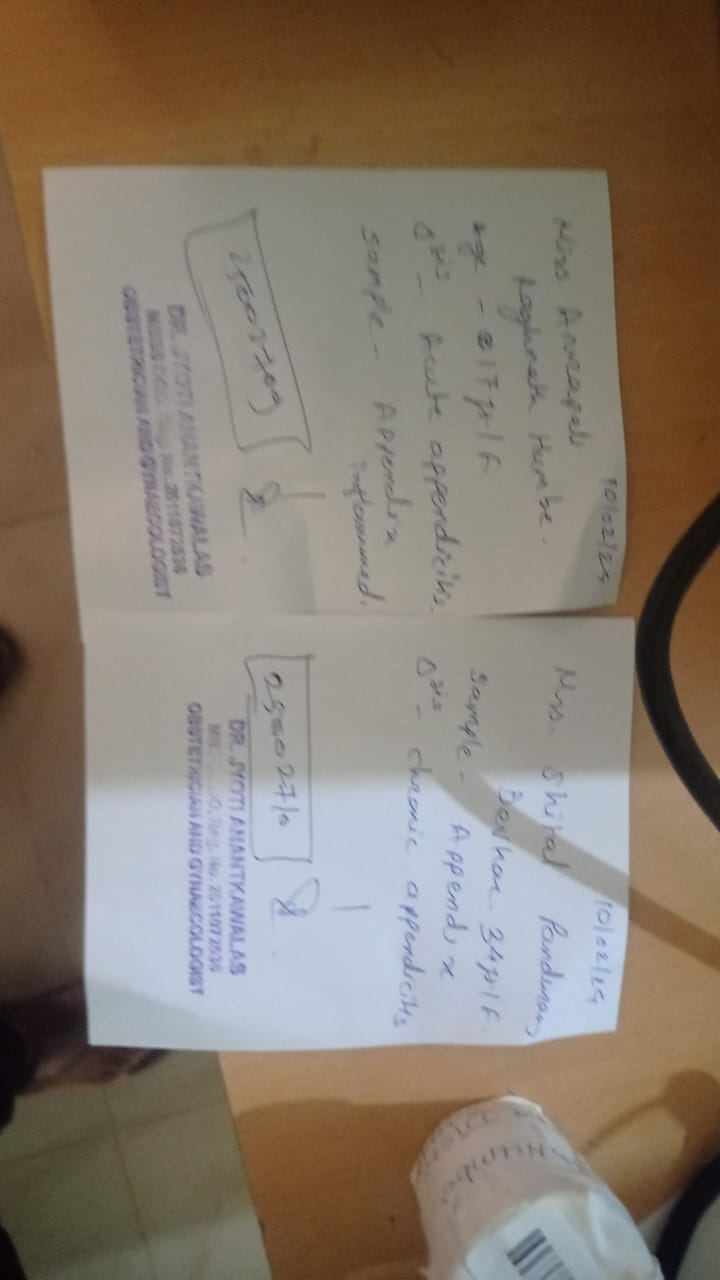 10/02/25
Miss
Raghunath Humbe.
Age - 17yr/F
Δsis - Acute appendicitis.
Sample - Appendix
inflammed.
25002709
DR. JYOTI ANANTKAWALAS
Reg. No. 2011072636
OBSTETRICIAN AND GYNAECOLOGIST
10/02/25
Mrs. Shital Pandurang
Devkar 34yr/F.
Sample - Appendix
Δsis - chronic appendicitis
25002710
DR. JYOTI ANANTKAWALAS
Reg. No. 2011072636
OBSTETRICIAN AND GYNAECOLOGIST